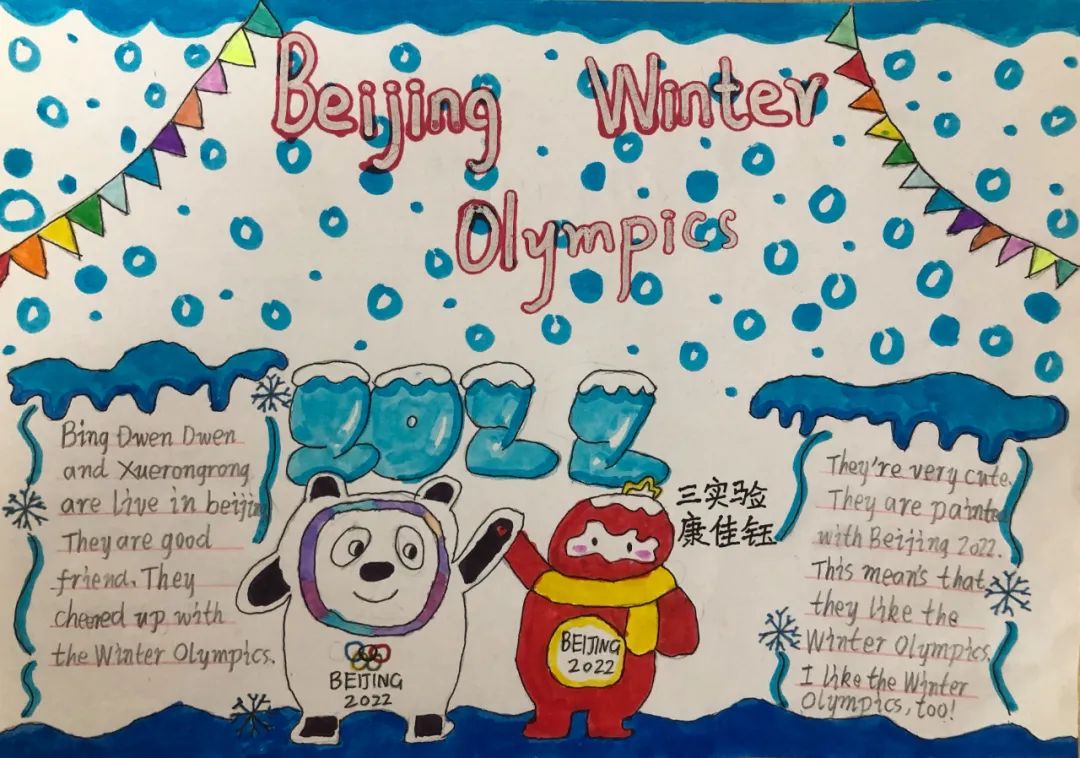 Beijing Winter
Olympics
2022
Bing Dwen Dwen
and Xuerongrong
are live in beijing
They are good
friend. They
cheered up with
the Winter Olympics.
BEIJING
2022
BEIJING
2022
三实验
康佳钰
They're very cute.
They are painted
with Beijing 2022.
This means that
they like the
Winter Olympics.
I like the Winter
Olympics, too!